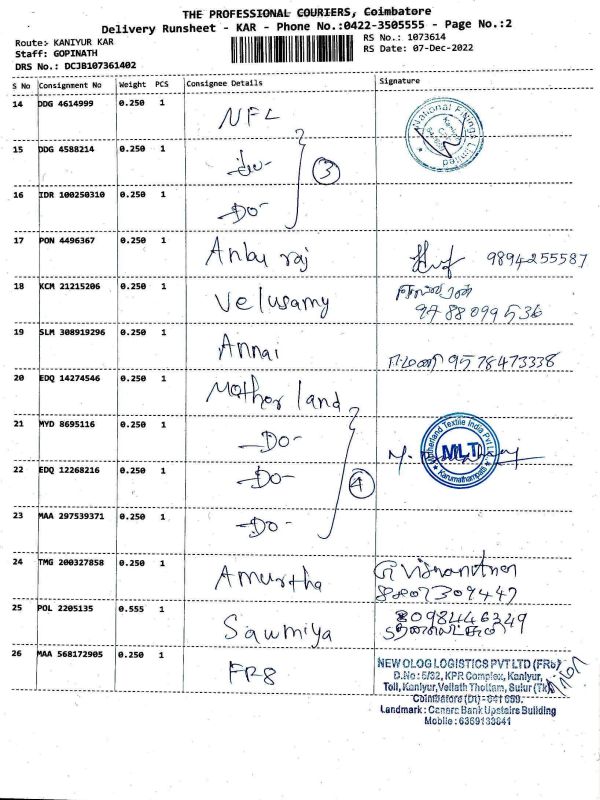 THE PROFESSIONAL COURIERS, Coimbatore
Delivery Runsheet - KAR - Phone No.:0422-3505555 - Page No.:2
Route:- KANIYUR KAR
Staff: GOPINATH
DRS No.: DCJB107361402
RS No.: 1073614
RS Date: 07-Dec-2022
S No Consignment No Weight PCS Consignee Details Signature
14 DDG 4614999 0.250 1 NFL
National Fittings Limited
15 DDG 4588214 0.250 1
3
16 IDR 100250310 0.250 1 -Do-
17 PON 4496367 0.250 1 Anbu raj 9894255587
18 KCM 21215206 0.250 1 Velusamy
9788099536
19 SLM 308919296 0.250 1 Annai
எ.மணி 9578473338
20 EDQ 14274546 0.250 1 Mother land
21 MYD 8695116 0.250 1 -Do-
Motherland Textile India Pvt Ltd
MLT
Karumathampatti
22 EDQ 12268216 0.250 1 -Do-
4
23 MAA 297539371 0.250 1 -Do-
24 TMG 200327858 0.250 1 Amurtha
G Vishnanthan
8807309447
25 POL 2205135 0.555 1 Sawmiya
8098446349
26 MAA 568172905 0.250 1 FR8
NEW OLOG LOGISTICS PVT LTD (FR8)
D.No: 5/32, KPR Complex, Kaniyur,
Toll, Kaniyur, Vellath Thottam, Sulur (Tk)
Coimbatore (Dt) - 641 659.
Landmark : Canara Bank Upstairs Building
Mobile : 6369133841